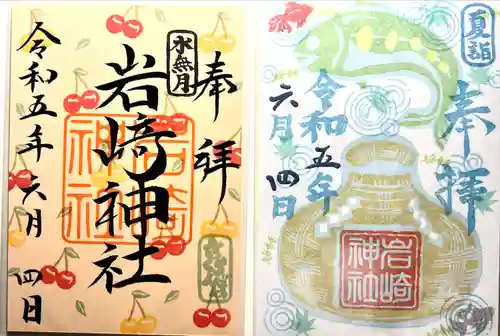 奉拝
水無月
岩﨑神社
岩崎神社
令和五年六月四日
夏詣
奉拝
岩崎神社
令和五年
六月四日